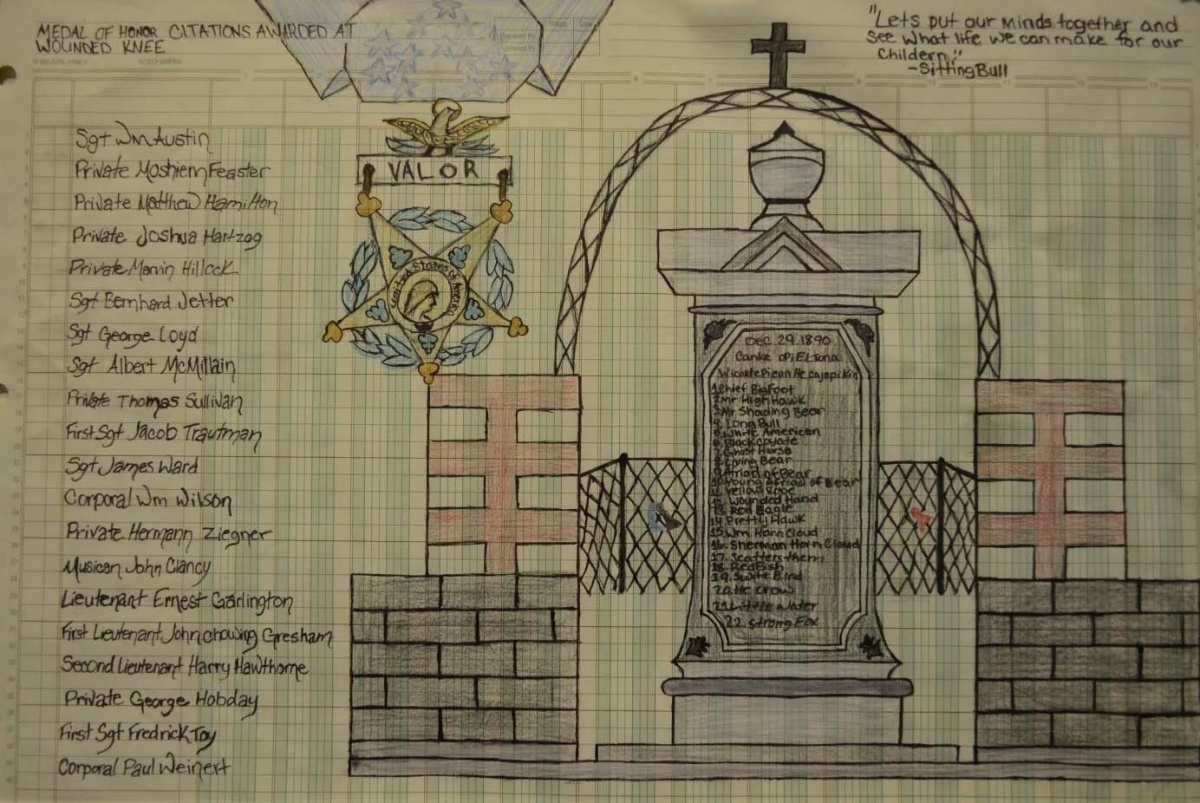 MEDAL OF HONOR CITATIONS AWARDED AT
WOUNDED KNEE
"Lets put our minds together and
see what life we can make for our
Childern."
-Sitting Bull
Sgt Wm Austin
Private Mosheim Feaster
Private Matthew Hamilton
Private Joshua Hartzog
Private Marvin Hillock
Sgt Bernhard Jetter
Sgt George Loyd
Sgt Albert McMillain
Private Thomas Sullivan
First Sgt Jacob Trautman
Sgt James Ward
Corporal Wm Wilson
Private Hermann Ziegner
Musican John Clancy
Lieutenant Ernest Garlington
First Lieutenant John chowing Gresham
Second Lieutenant Harry Hawthorne
Private George Hobday
First Sgt Fredrick Toy
Corporal Paul Weinert
VALOR
United States of America
Dec. 29.1890
Canke Opi Eltona
1 Chief Bigfoot
2 Mr High Hawk
3 Mr Shading Bear
4 Long Bull
5 White American
6 Black Coyote
7 Ghost Horse
8 Living Bear
9 Afriad of Bear
10 Young Afriad of Bear
11 Yellow Robe
12 Wounded Hand
13 Red Eagle
14 Pretty Hawk
15 Wm Horn Cloud
16 Sherman Horn Cloud
17. Scatters them
18. Red Fish
19. Swift Bird
20. He Crow
21. Little Water
22. Strong Fox